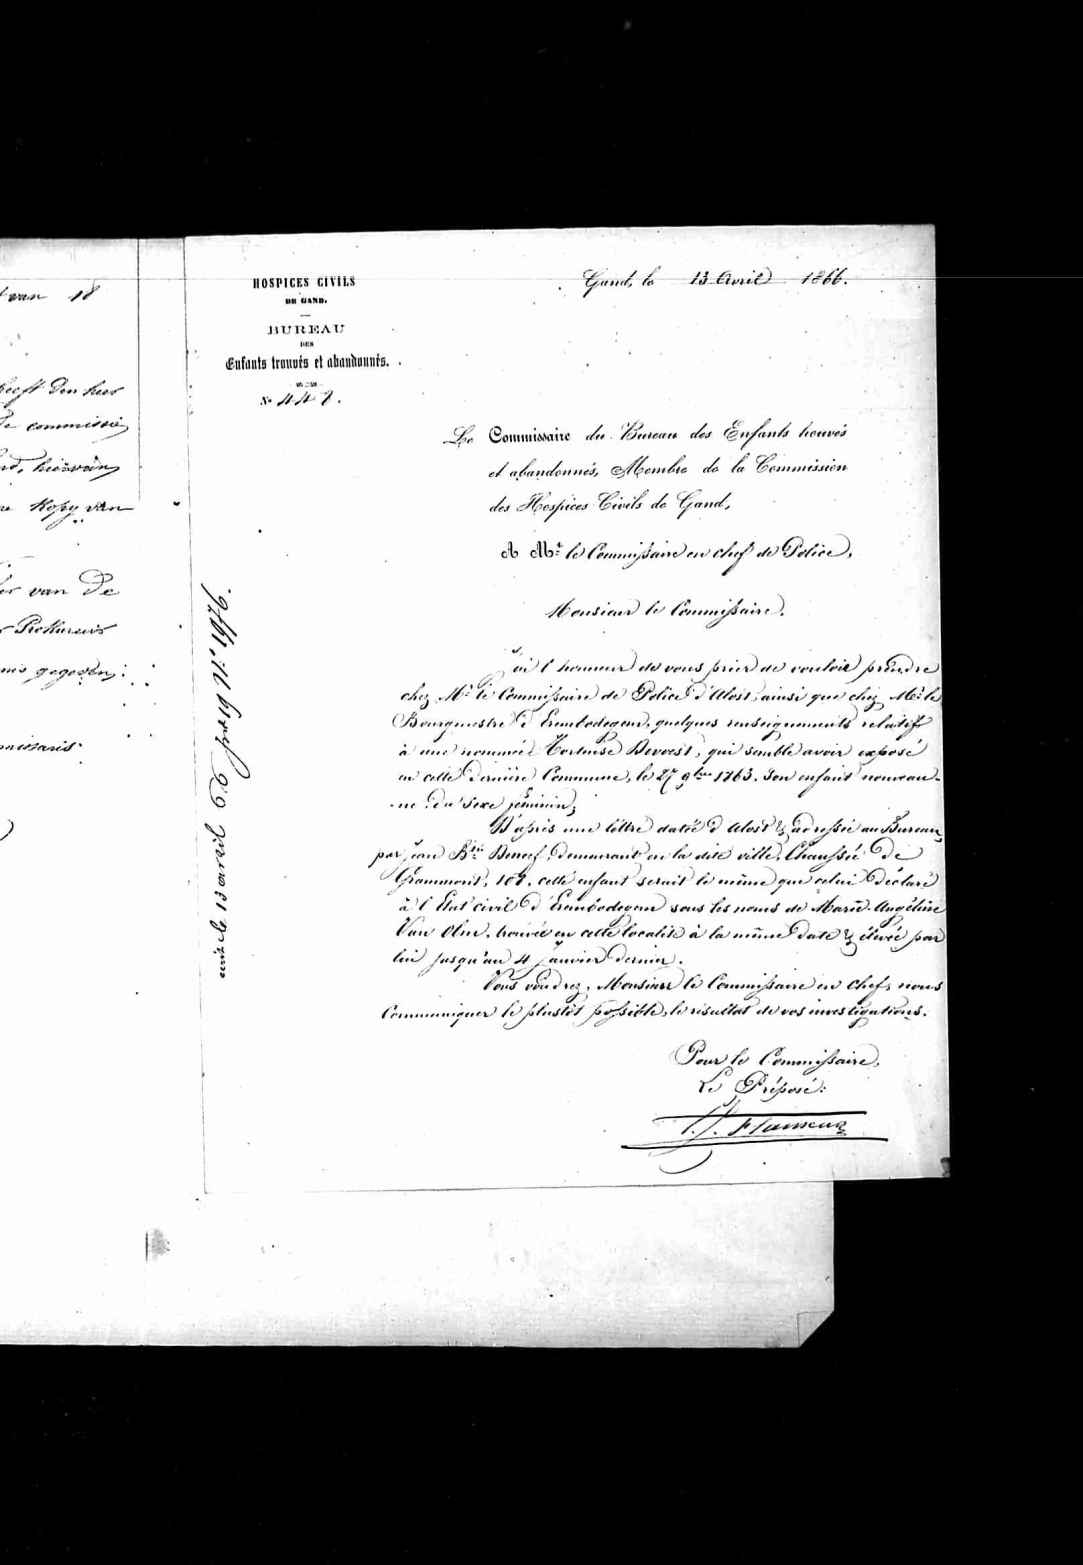 t van 18
heeft den heer
de commissie
kopy van
van De
Prokureur
gegeven:
HOSPICES CIVILS
DE GAND.
BUREAU
DES
Enfants trouvés et abandonnés.
No 447.
Gand, le 13 Avril 1866.
Le Commissaire du Bureau des Enfants trouvés
et abandonnés, Membre de la Commission
des Hospices Civils de Gand,
A Mr le Commissaire en chef de Police,
Monsieur le Commissaire.
J'ai l'honneur de vous prier de vouloir prendre
chez Mr le Commissaire de Police d'Alost, ainsi que chez Mr le
Bourgmestre d'Erembodegem, quelques renseignements relatifs
à une nommée Hortense Devoest, qui semble avoir exposé
en cette dernière Commune, le 27 9bre 1863, son enfant nouveau-
-né du sexe féminin,
D'après une lettre datée d'Alost & adressée au Bureau,
par Jean Bte demeurant en la dite ville, Chaussée de
Grammont, 107, cette enfant serait le même que celui déclaré
à l'Etat civil d'Erembodegem sous les noms de Marie-Angéline
Van trouvée en cette localité à la même date & élevée par
lui jusqu'au 4 Janvier dernier.
Vous voudrez, Monsieur le Commissaire en chef, nous
Communiquer le plustôt possible, le résultat de vos investigations.
Pour le Commissaire,
Le Préposé: